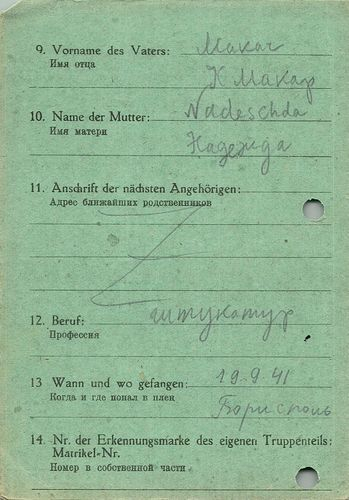 9. Vorname des Vaters: Макач
Имя отца К Макар
10. Name der Mutter: Nadeschda
Имя матери Надежда
11. Anschrift der nächsten Angehörigen:
Адрес ближайших родственников
12. Beruf: штукатур
Профессия
13 Wann und wo gefangen: 19.9.41
Когда и где попал в плен Борисполь
14. Nr. der Erkennungsmarke des eigenen Truppenteils:
Matrikel-Nr.
Номер в собственной части